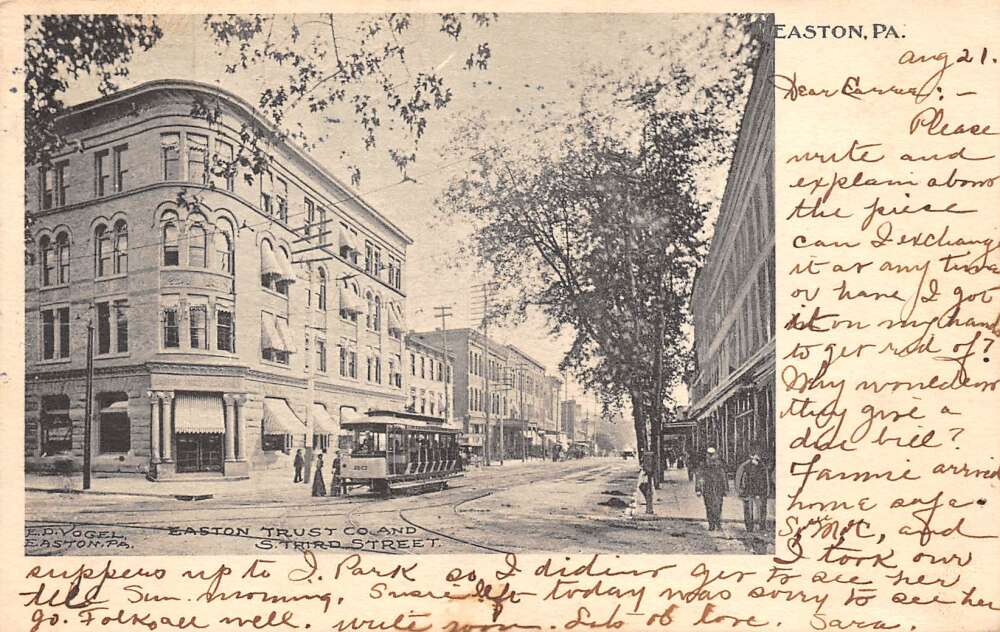 EASTON, PA.
Aug 21.
Dear Carrie: —
Please
write and
explain about
the piece
can I exchange
it at any time
or have I got
it on my hand
to get rid of?
Why wouldn't
they give a
due bill?
Fannie arrived
home safe.
Sue, McC, and
I took our
suppers up to I. Park so I didn't get to see her
till Sun. morning. Susie left today was sorry to see her
go. Folks all well. Write soon. Lots of love. Sara.
E.D. VOGEL,
EASTON, PA.
EASTON TRUST CO. AND
S. THIRD STREET.